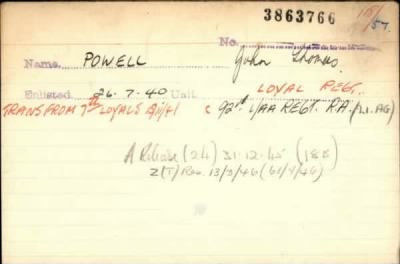 3863766 10/57.
No.
Name POWELL John Thomas
Enlisted 26.7.40 Unit LOYAL REGT.
TRANS FROM 7th LOYALS C 92nd L/AA REGT. R.A. (L.I. AG)
A Release (24) 31.12.45 (188)
Z(T) Res. 13/3/46 (61/9/46)